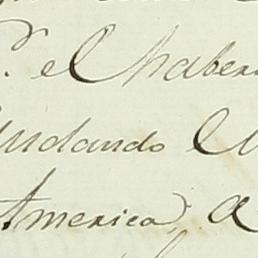 el haber
udando el
America, a